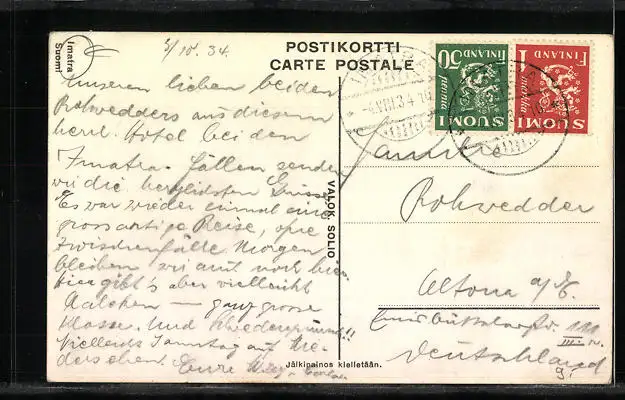 Imatra
Suomi
5/10. 34.
POSTIKORTTI
CARTE POSTALE
50 FINLAND
penniä
SUOMI
1 FINLAND
markka
SUOMI
Unseren lieben beiden
Rohwedders aus diesem
herrl. Hotel bei den
Imatra-Fällen senden
wir die herzlichsten Grüsse
Es war wieder einmal eine
grossartige Reise, ohne
Zwischenfälle. Morgen
bleiben wir auch noch hier
hier gibt's aber vielleicht
Aalchen — ganz grosse
Klasse. Und
Sonntag auf
Eure
VALOK. SOLIO
Jälkipainos kielletään.
Familie
Rohwedder
Altona a/E.
111
III.
Deutschland